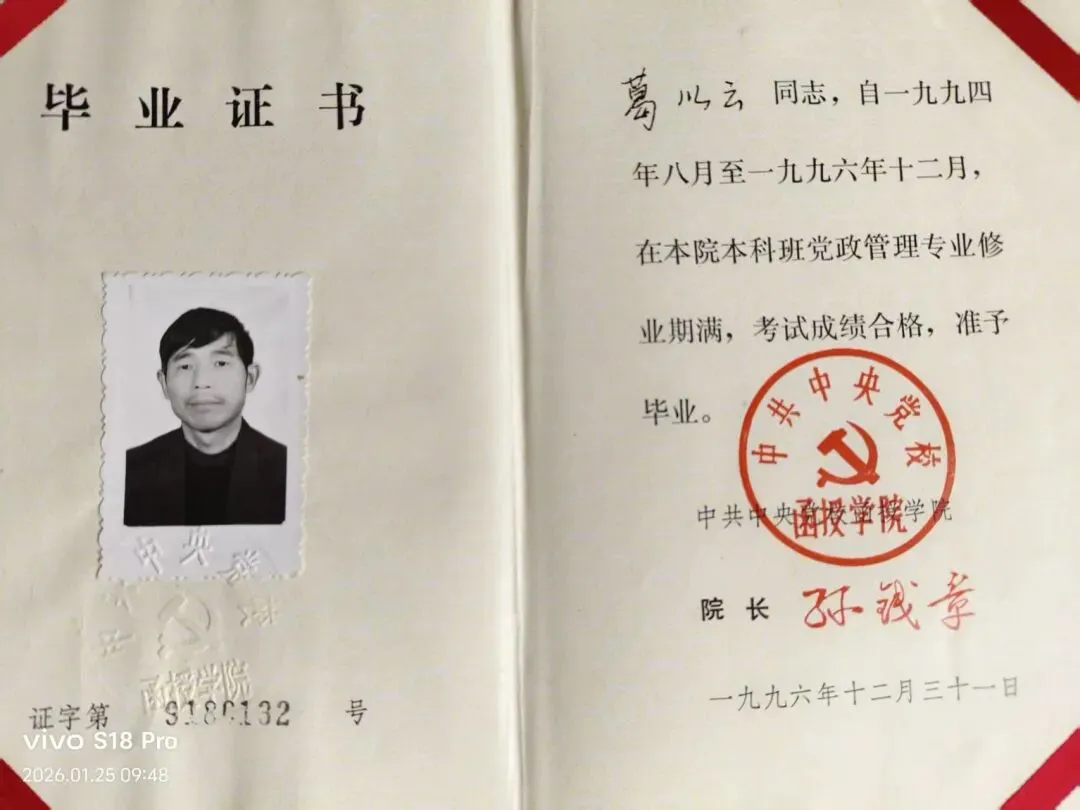 毕业证书
中共中央党校
函授学院
证字第 9180132 号
vivo S18 Pro
2026.01.25 09:48
葛以云 同志，自一九九四
年八月至一九九六年十二月，
在本院本科班党政管理专业修
业期满，考试成绩合格，准予
毕业。
中共中央党校
函授学院
中共中央党校函授学院
院长 孙钱章
一九九六年十二月三十一日